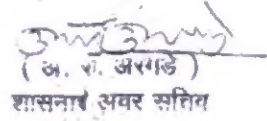 ( अ. रा. अरगडे )
शासनाचे अवर सचिव